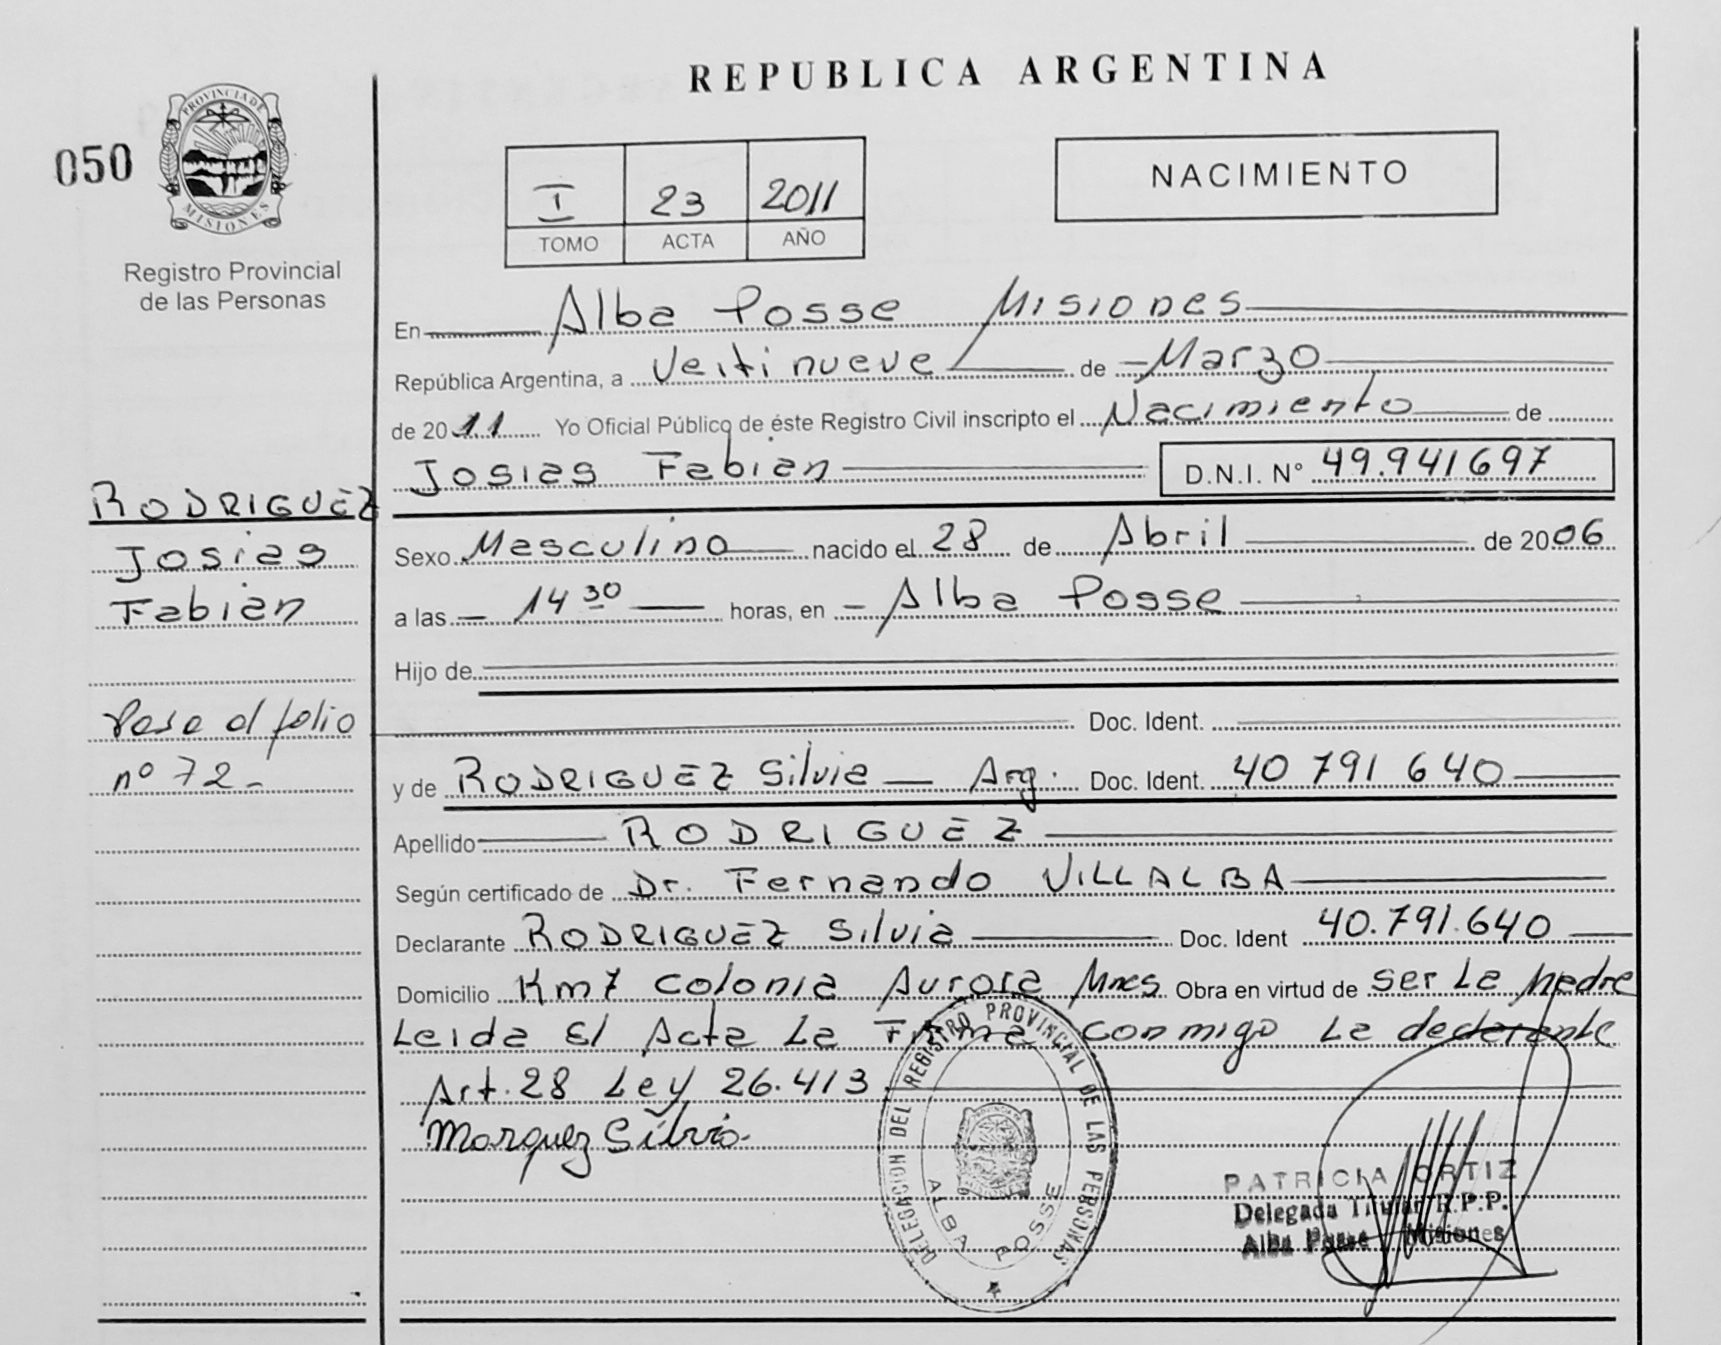 REPUBLICA ARGENTINA
050
PROVINCIA DE
MISIONES
Registro Provincial
de las Personas
I 23 2011
TOMO ACTA AÑO
NACIMIENTO
En Alba Posse Misiones
República Argentina, a Veitinueve de Marzo
de 2011 Yo Oficial Público de éste Registro Civil inscripto el Nacimiento de
Josias Fabian D.N.I. N° 49.941697
RODRIGUEZ
Josias
Fabian
Sexo Masculino nacido el 28 de Abril de 2006
a las 14 30 horas, en Alba Posse
Hijo de
Doc. Ident.
Pase al folio
nº 72
y de RODRIGUEZ Silvia Arg. Doc. Ident. 40 791 640
Apellido RODRIGUEZ
Según certificado de Dr. Fernando VILLALBA
Declarante RODRIGUEZ Silvia Doc. Ident 40.791.640
Domicilio Km7 Colonia Aurora Mnes Obra en virtud de ser La Madre
Leida El Acta La Firma conmigo La declarante
Art. 28 Ley 26.413
Marquez Silvia
DELEGACION DEL REGISTRO PROVINCIAL DE LAS PERSONAS
ALBA POSSE
PATRICIA ORTIZ
Delegada Titular R.P.P.
Alba Posse Misiones